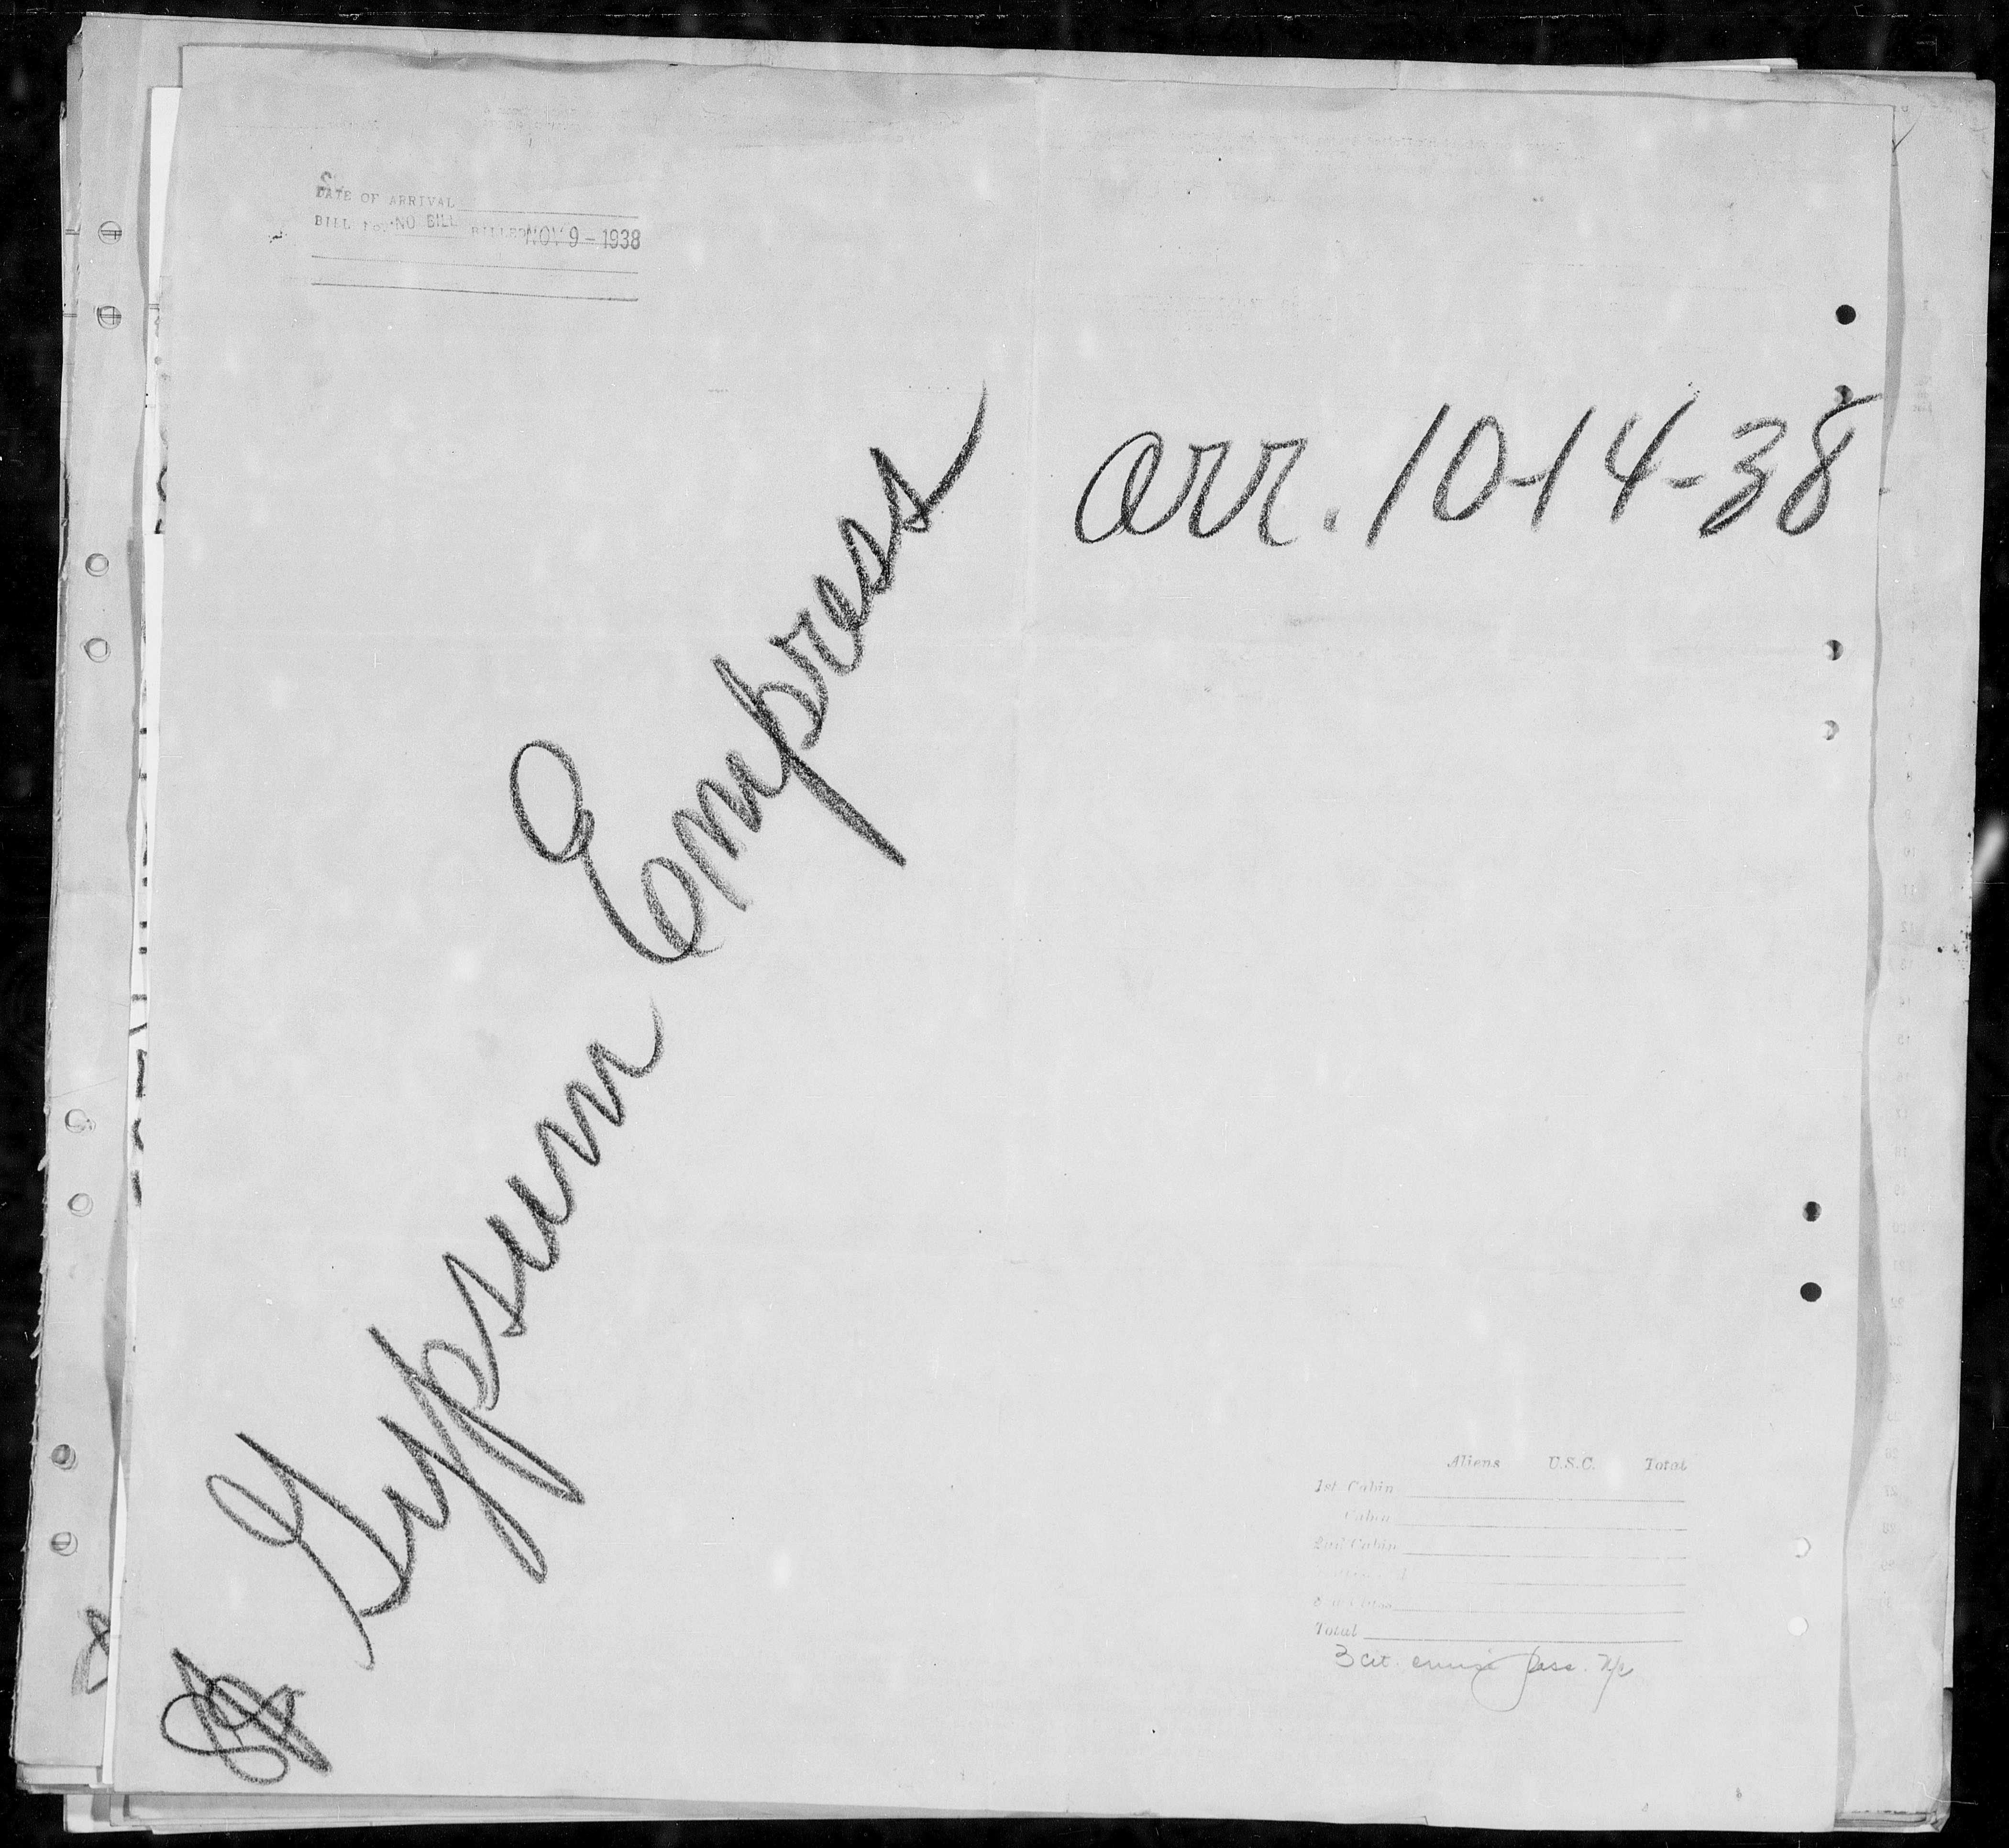 DATE OF ARRIVAL
BILL No. NO BILL BILLED NOV 9 - 1938
arr. 10-14-38
SS Gypsum Empress
Aliens U.S.C. Total
1st Cabin
Cabin
2nd Cabin
Total
3 cit. cruise pass.